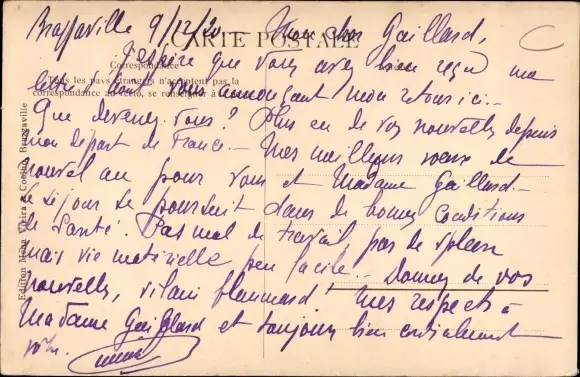 Brazzaville 9/12/20 — Mon cher Gaillard,
CARTE POSTALE
J'espère que vous avez bien reçu ma
Correspondance
Tous les pays étrangers n'acceptent pas la
correspondance au recto, se renseigner à la
vous annonçant mon retour ici. —
Que devenez vous ? Plus eu de vos nouvelles depuis
mon départ de France. — Mes meilleurs voeux de
nouvel an pour vous et Madame Gaillard. —
Le séjour se poursuit dans de bonnes conditions
de santé. Pas mal de travail, pas de spleen
mais vie matérielle peu facile. — Donnez de vos
nouvelles, vilain flemmard. Mes respects à
Madame Gaillard et toujours bien cordialement
vôtre.
Edition Vieira & Brazzaville